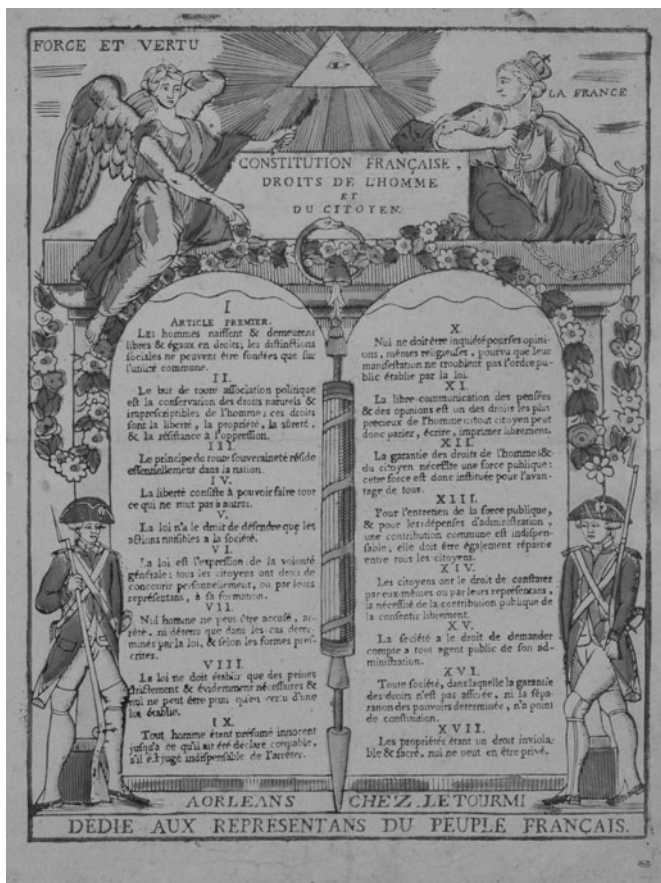 FORCE ET VERTU
LA FRANCE
CONSTITUTION FRANÇAISE,
DROITS DE L'HOMME
ET
DU CITOYEN.
I
ARTICLE PREMIER.
Les hommes naissent & demeurent
libres & égaux en droits; les distinctions
sociales ne peuvent être fondées que sur
l'utilité commune.
II.
Le but de toute association politique
est la conservation des droits naturels &
imprescriptibles de l'homme; ces droits
sont la liberté, la propriété, la sûreté,
& la résistance à l'oppression.
III.
Le principe de toute souveraineté réside
essentiellement dans la nation.
IV.
La liberté consiste à pouvoir faire tout
ce qui ne nuit pas à autrui.
V.
La loi n'a le droit de défendre que les
actions nuisibles à la société.
VI.
La loi est l'expression de la volonté
générale; tous les citoyens ont droit de
concourir personnellement, ou par leurs
représentans, à sa formation.
VII.
Nul homme ne peut être accusé, ar-
rêté, ni détenu que dans les cas deter-
minés par la loi, & selon les formes pres-
crites.
VIII.
La loi ne doit établir que des peines
strictement & évidemment nécessaires &
nul ne peut être puni qu'en vertu d'une
loi établie.
IX.
Tout homme étant présumé innocent
jusqu'a ce qu'il ait été déclaré coupable,
s'il est jugé indispensable de l'arrêter.
X.
Nul ne doit être inquiété pour ses opini-
ons, mêmes religieuses, pourvu que leur
manifestation ne troublent pas l'ordre pu-
blic établie par la loi.
XI.
La libre communication des pensées
& des opinions est un des droits les plus
precieux de l'homme: tout citoyen peut
donc parler, écrire, imprimer librement.
XII.
La garantie des droits de l'homme &
du citoyen nécessite une force publique:
cette force est donc instituée pour l'avan-
tage de tous.
XIII.
Pour l'entretien de la force publique,
& pour les dépenses d'administration,
une contribution commune est indispen-
sable, elle doit être également répartie
entre tous les citoyens.
XIV.
Les citoyens ont le droit de constater
par eux-mêmes ou par leurs représentans,
la nécessité de la contribution publique de
la consentir librement.
XV.
La société a le droit de demander
compte a tout agent public de son ad-
ministration.
XVI.
Toute société, dans laquelle la garantie
des droits n'est pas assurée, ni la sépa-
ration des pouvoirs déterminée, n'a point
de constitution.
XVII.
Les propriétés étant un droit inviola-
ble & sacré, nul ne peut en être privé.
A ORLEANS CHEZ LETOURMI
DÉDIE AUX REPRÉSENTANS DU PEUPLE FRANÇAIS.